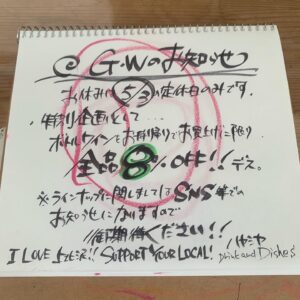 G.Wのお知らせ
お休みは5/3の定休日のみです。
特別企画として…
ボトルワインをお持帰りでお買上げに限り
全品8%OFF!!デス。
※ラインナップに関しましてはSNS等での
お知らせになりますので
御期待ください!!
I LOVE 上北沢!! SUPPORT YOUR LOCAL!
Drink and Dishes